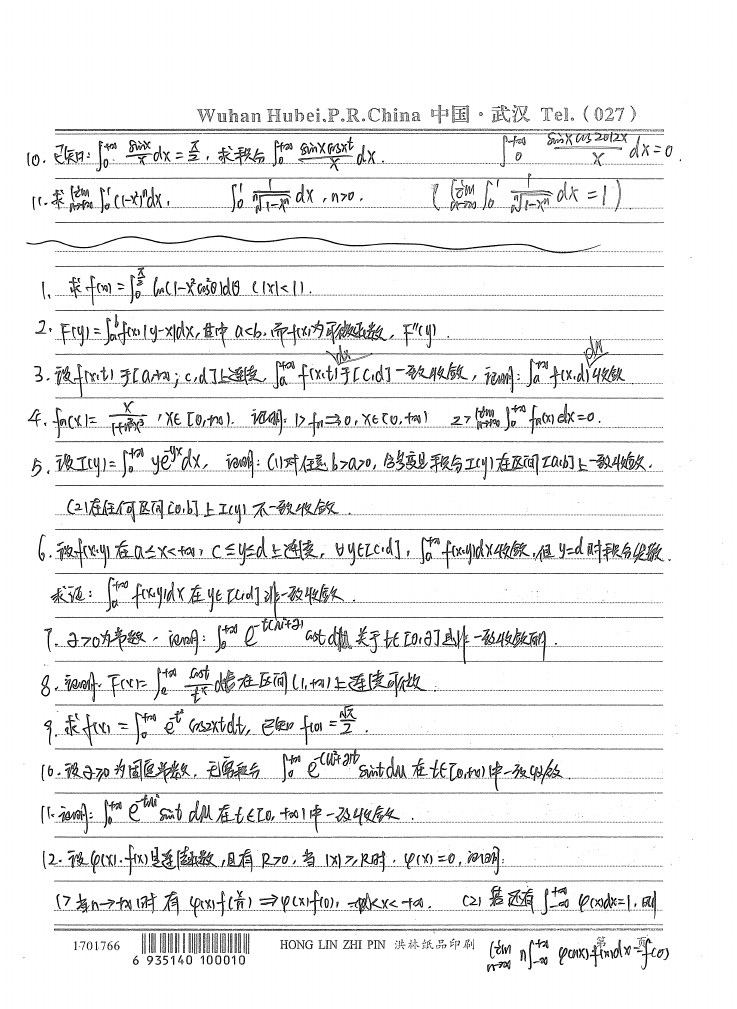 Wuhan Hubei.P.R.China 中国·武汉 Tel.(027)
10. 已知: ∫₀^{+∞} sinx/x dx = π/2, 求积分 ∫₀^{+∞} sinxcosxt/x dx. ∫₀^{+∞} sinxcos2012x/x dx=0.
11. 求 lim_{n→+∞} ∫₀¹ (1-x²)ⁿdx, ∫₀¹ 1/ⁿ√(1-xⁿ) dx, n>0. (lim_{n→∞} ∫₀¹ 1/ⁿ√(1-xⁿ) dx =1)
1. 求 f(x) = ∫₀^{π/2} ln(1-x²cos²θ)dθ (|x|<1).
2. F(y) = ∫ₐᵇ f(x)|y-x|dx, 其中 a<b, 而f(x)为可微函数, F''(y).
3. 设f(x,t)于[a,+∞; c,d]上连续, ∫ₐ^{+∞} f(x,t)dx于[c,d)一致收敛, 证明: ∫ₐ^{+∞} f(x,d)dx收敛
4. fₙ(x) = x/(1+n³x³), x∈[0,+∞). 证明: 1> fₙ⇒0, x∈[0,+∞) 2> lim_{n→+∞} ∫₀^{+∞} fₙ(x)dx=0.
5. 设I(y)=∫₀^{+∞} ye^{-yx}dx, 证明: (1)对任意b>a>0, 含参变量积分I(y)在区间[a,b]上一致收敛.
(2)在任何区间[0,b]上I(y)不一致收敛.
6. 设f(x,y)在a≤x<+∞, c≤y≤d上连续, ∀y∈[c,d), ∫ₐ^{+∞} f(x,y)dx收敛, 但y=d时积分发散.
求证: ∫ₐ^{+∞} f(x,y)dx在y∈[c,d)非一致收敛.
7. a>0为常数, 证明: ∫₀^{+∞} e^{-t(u²+a²)} cost du 关于t∈[0,a]是非一致收敛的.
8. 证明: F(x) = ∫ₑ^{+∞} cost/tˣ dt在区间(1,+∞)上连续可微.
9. 求f(x) = ∫₀^{+∞} e^{-t²} cos2xtdt, 已知f(0)=√π/2.
10. 设a>0为固定常数, 无穷积分 ∫₀^{+∞} e^{-(u²+a²)t} sintdu 在t∈[0,+∞)中一致收敛.
11. 证明: ∫₀^{+∞} e^{-tu²} sint du 在t∈[0,+∞)中一致收敛.
12. 设φ(x),f(x)是连续函数,且有R>0, 当|x|≥R时, φ(x)=0, 证明:
1> 当n→+∞时有 φ(x)f(x/n)⇒φ(x)f(0), -∞<x<+∞. (2) 若还有 ∫_{-∞}^{+∞} φ(x)dx=1, 则
lim_{n→∞} n∫_{-∞}^{+∞} φ(nx)f(x)dx=f(0)
1701766 HONG LIN ZHI PIN 洪林纸品印刷 第 页
6 935140 100010